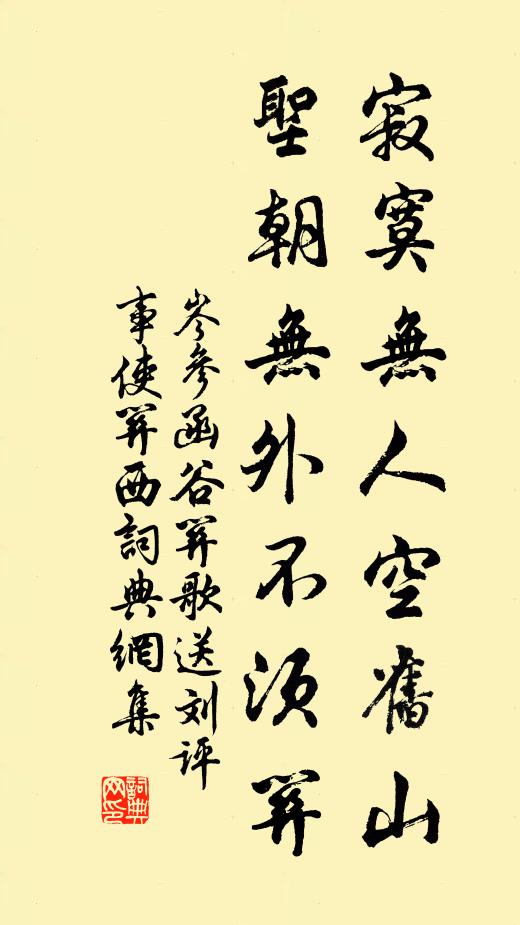 寂寞無人空舊山
聖朝無外不須關
岑參函谷關歌送刘评
事使關西詞典網集
詞典
文印